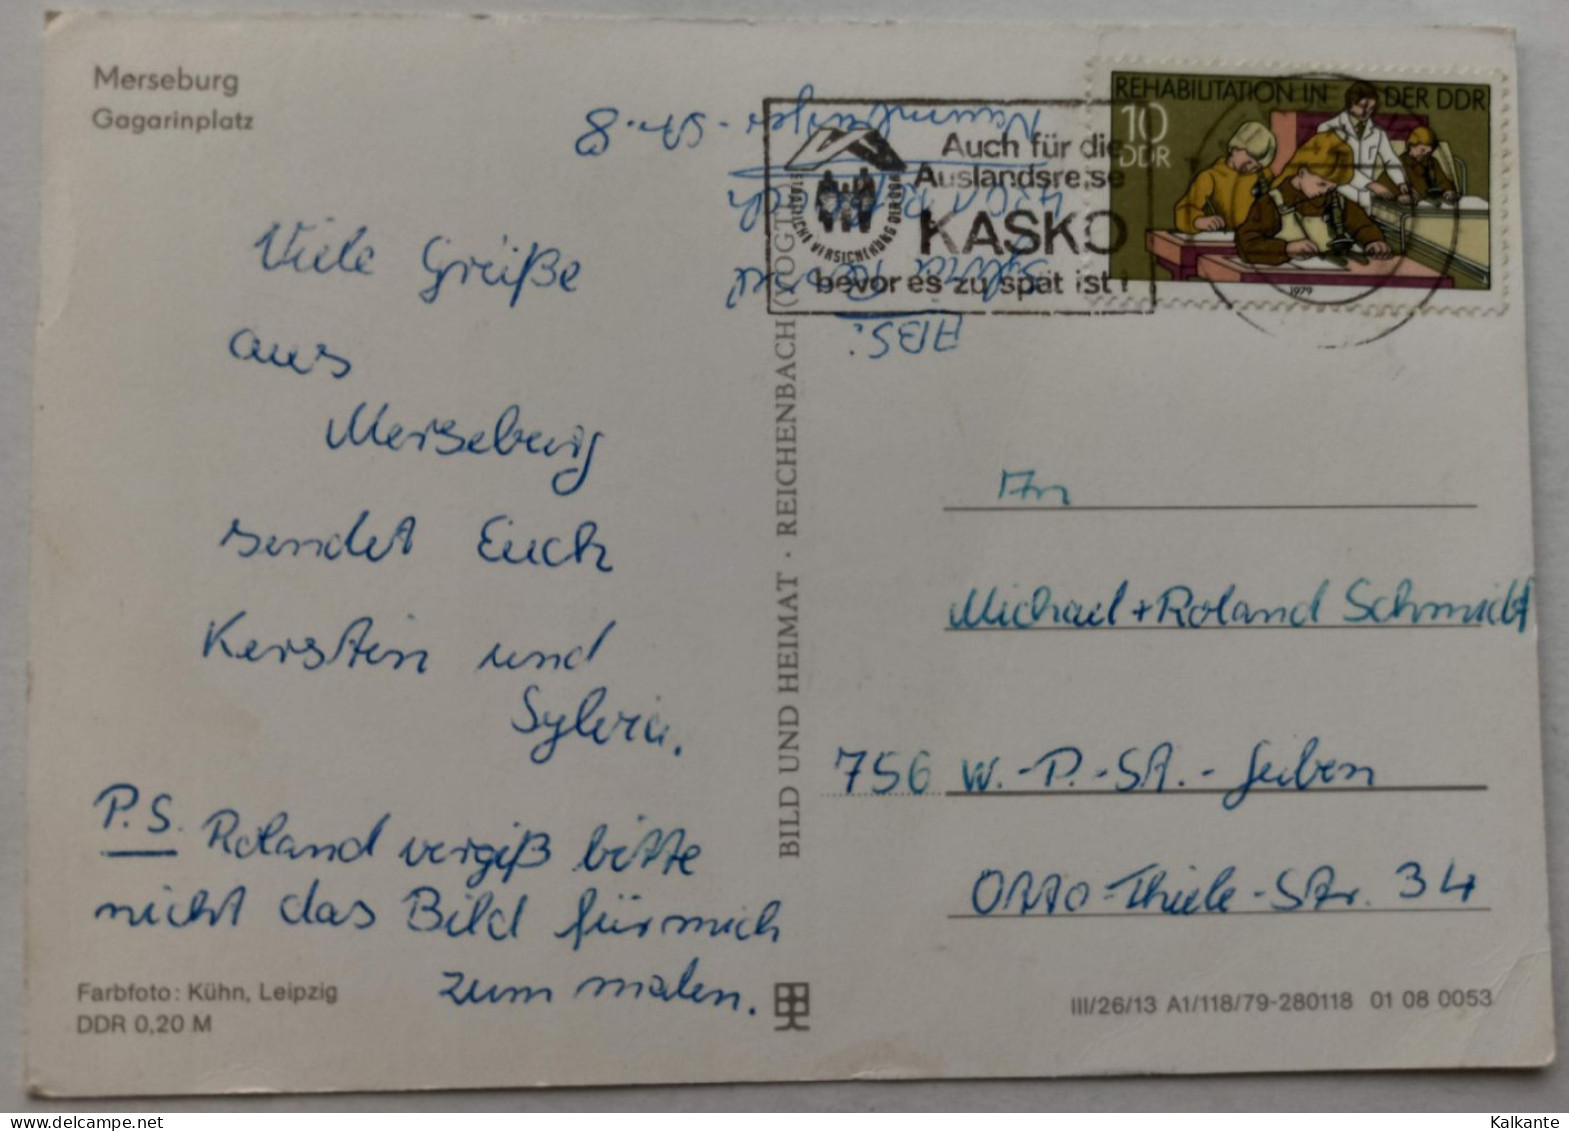 Merseburg
Gagarinplatz
Viele Grüße
aus
Merseburg
sendet Euch
Kerstin und
Sylvia.
P.S. Roland vergiß bitte
nicht das Bild für mich
zum malen.
Farbfoto: Kühn, Leipzig
DDR 0,20 M
BILD UND HEIMAT · REICHENBACH (VOGTL
ABS.:
Sylvia
4201
Naumburger-Str. 8
Auch für die
Auslandsreise
KASKO
bevor es zu spät ist!
STAATLICHE VERSICHERUNG DER DDR
REHABILITATION IN DER DDR
10
DDR
1979
An
Michael + Roland Schmidt
756 W.-P.-St.-Guben
Otto-Thiele-Str. 34
III/26/13 A1/118/79-280118 01 08 0053
www.delcampe.net
Kalkante